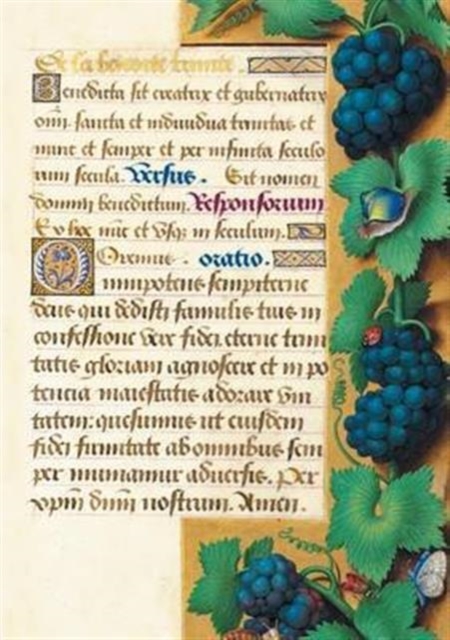 De la benoite trinite.
Benedicta sit creatrix et gubernatrix
omn̄. sancta et indiuidua trinitas et
nunc et semper et per infinita seculo
rum secula. Versus. Sit nomen
domini benedictum. Responsorium
Ex hoc nūc et vsq; in seculum.
Oremus. oratio.
Omnipotens sempiterne
deus qui dedisti famulis tuis in
confessione vere fidei, eterne trini
tatis gloriam agnoscere et in po
tencia maiestatis adorare vni
tatem: quesumus ut eiusdem
fidei firmitate ab omnibus sem
per muniamur aduersis. Per
xp̄m dn̄m nostrum. Amen.